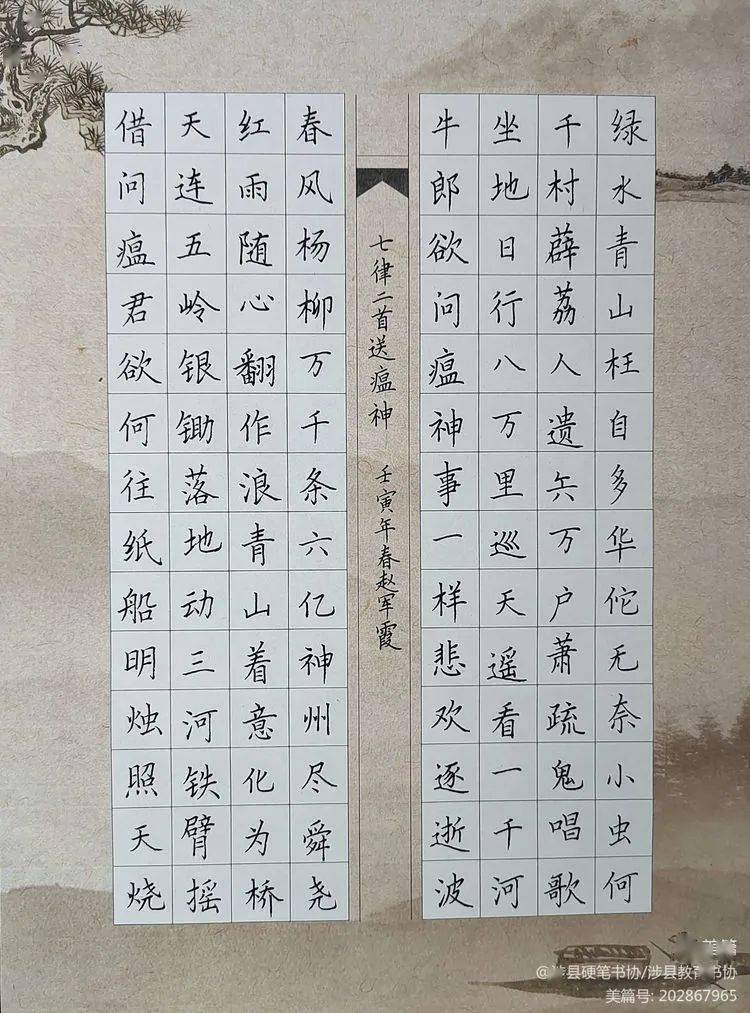 绿水青山枉自多华佗无奈小虫何
千村薜荔人遗矢万户萧疏鬼唱歌
坐地日行八万里巡天遥看一千河
牛郎欲问瘟神事一样悲欢逐逝波
七律二首送瘟神 壬寅年春赵军霞
春风杨柳万千条六亿神州尽舜尧
红雨随心翻作浪青山着意化为桥
天连五岭银锄落地动三河铁臂摇
借问瘟君欲何往纸船明烛照天烧
美篇
@涉县硬笔书协/涉县教育书协
美篇号: 202867965